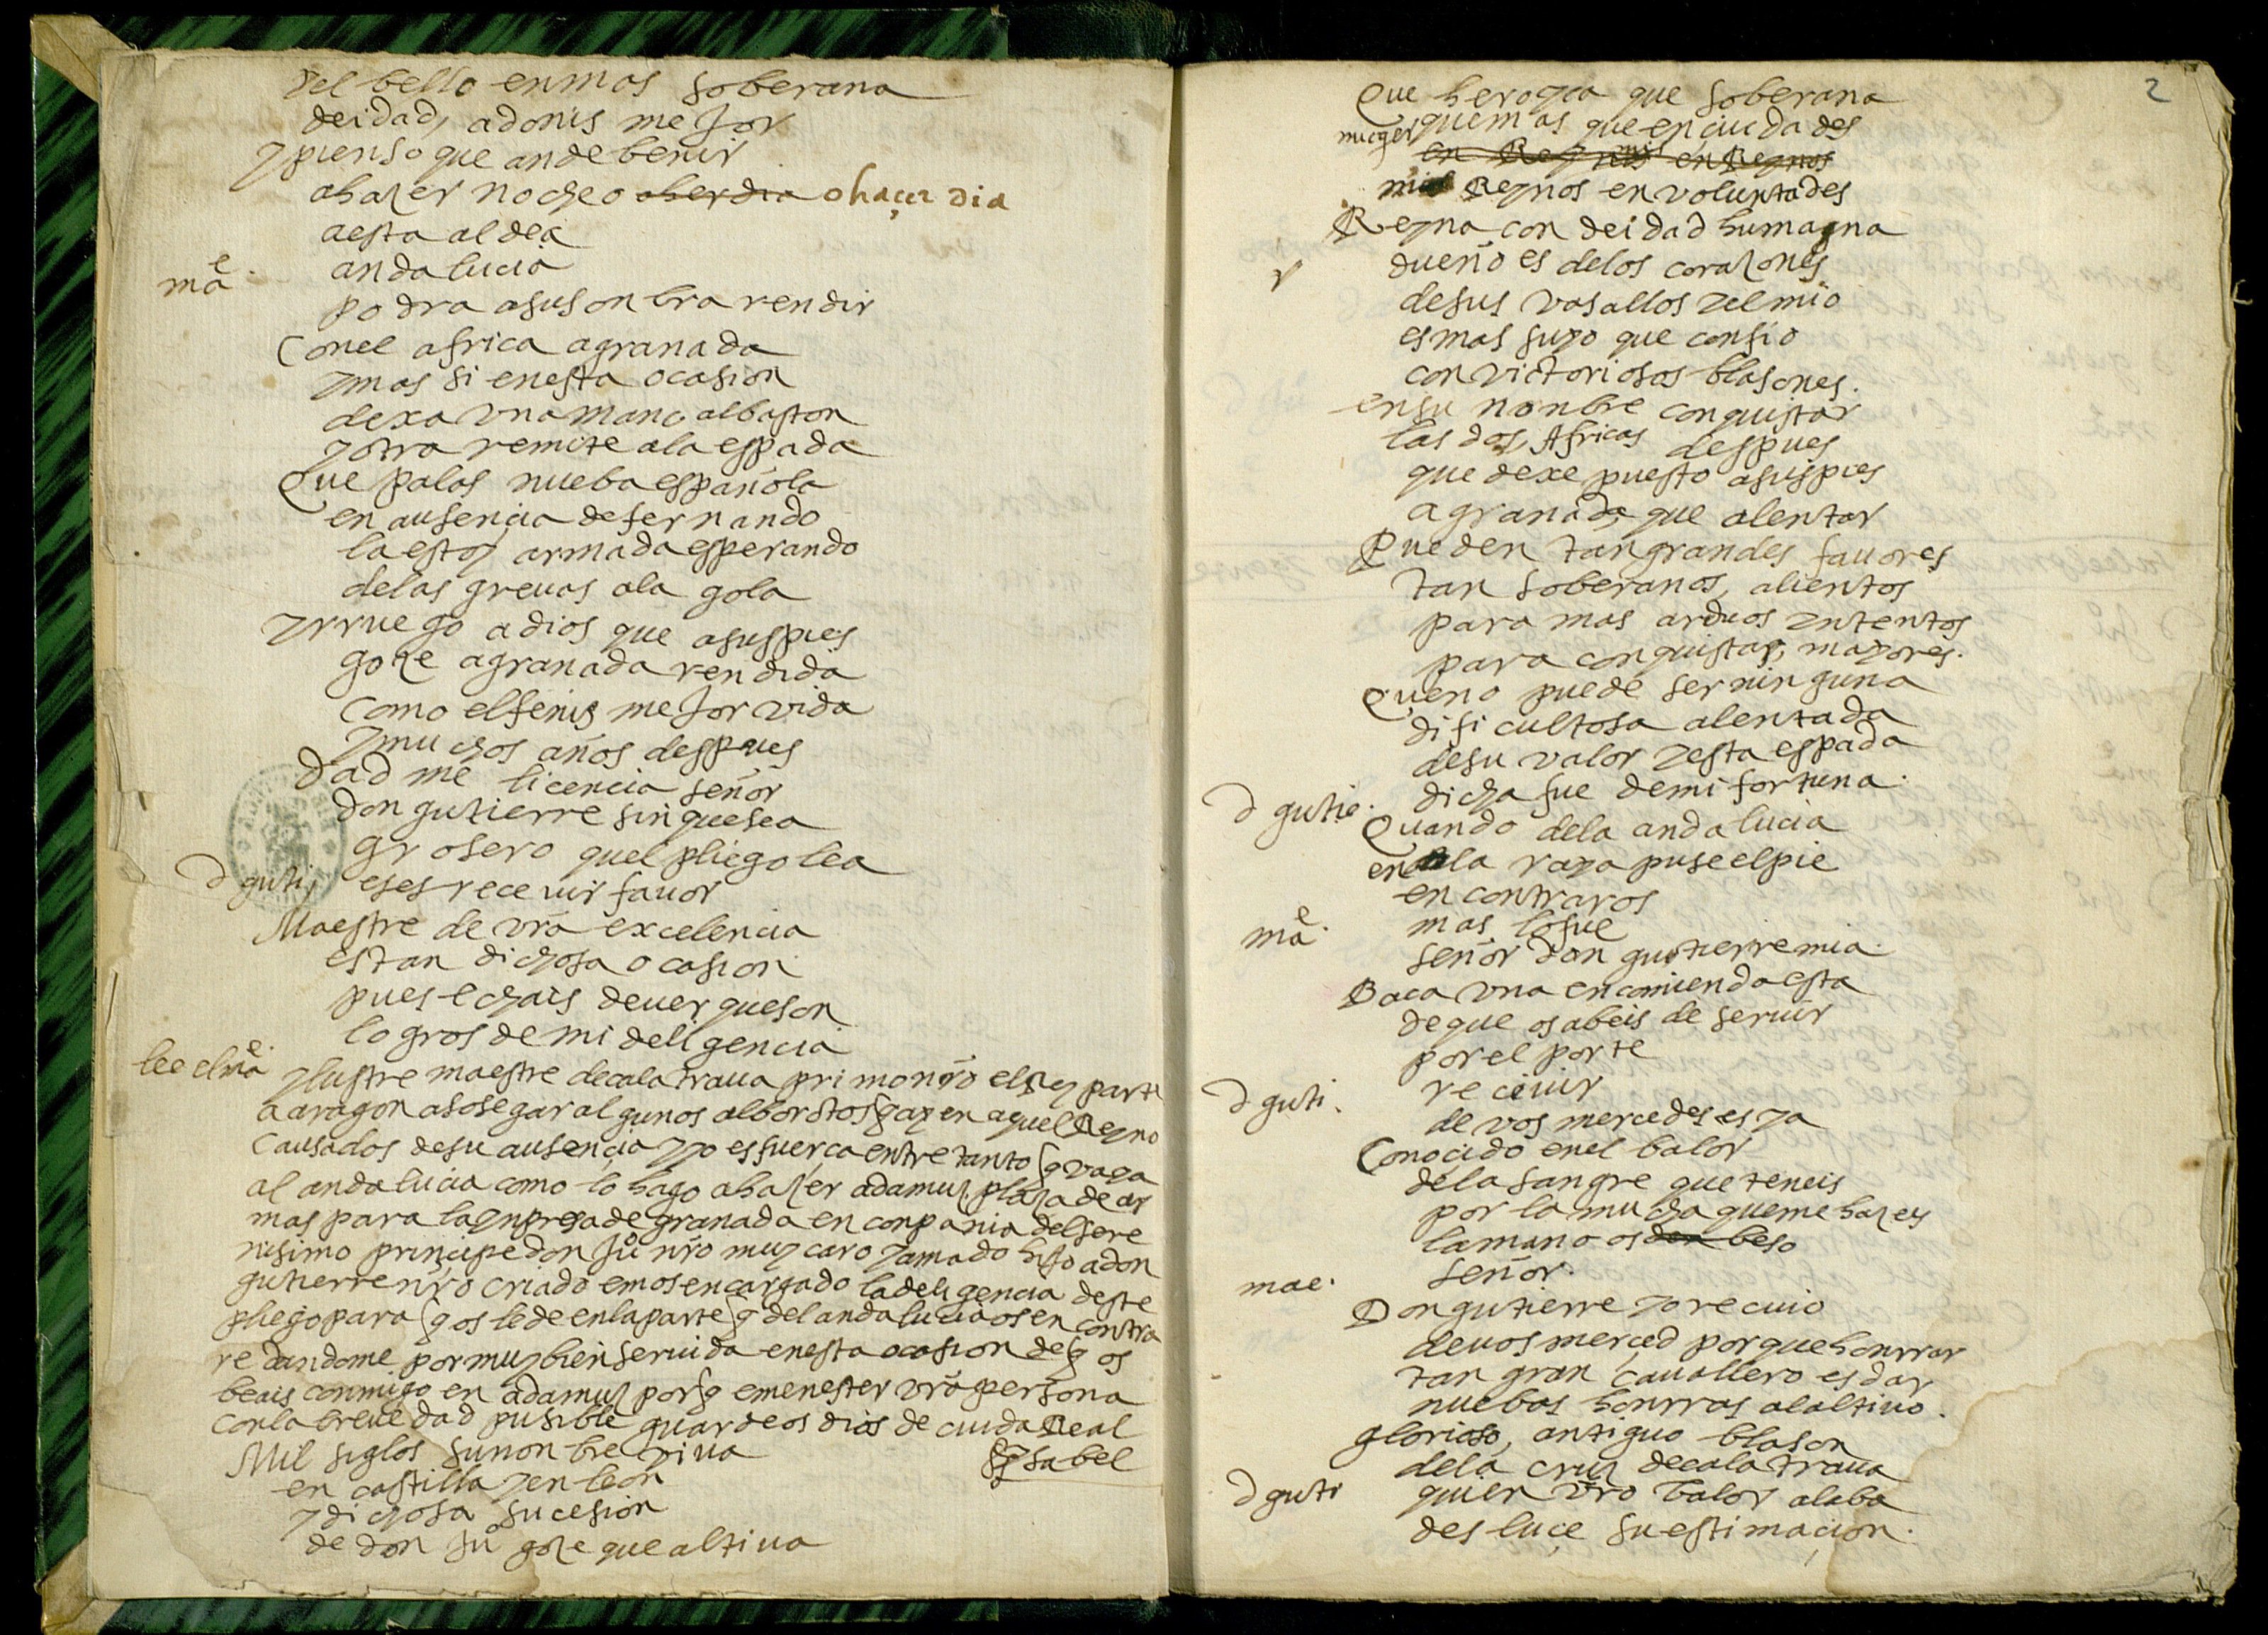 del bello en mas soberana
deidad, adonis mejor
y pienso que an de benir
a hazer noche o aherdia o haçer dia
a esta aldea
mae. andalucia
podra a su sonbra rendir
Con el africa a granada
y mas si en esta ocasion
dexa una mano al baston
y otra remite a la espada
Que palas nueba española
en ausençia de fernando
la estoy armada esperando
de las greuas a la gola
y rruego a dios que a sus pies
goze a granada rendida
como el fenis mejor vida
y muchos años despues
Dad me licencia señor
don gutierre sin que sea
grosero quel pliego lea
d guti. eses receuir fauor
Maestre de vra excelencia
es tan dichosa ocasion
pues echais de uer que son
logros de mi deligencia
lee el mae. ylustre maestre de calatraua primo nro el Rey parte
a aragon a sosegar algunos alborotos q ay en aquel Reyno
Causados de su ausençia y yo es fuerça entre tanto q vaya
al andalucia como lo hago a hazer adamuz plaza de ar
mas para la ynpresa de granada en conpania del sere
nisimo prinçipe don Juo nro muy caro y amado hijo a don
gutierre nro criado emos encargado la deligencia deste
pliego para q os le de en la parte q del andalucia os encontra
re dandome por muy bien seruida en esta ocasion de q os
beais conmigo en adamuz por q e menester vra persona
con la breuedad pusible guardeos dios de ciuda Real
Mil siglos su nonbre viua Yysabel
en castilla y en leon
y dichosa sucesion
de don Juo goze que altiua
2
Que heroyca que soberana
muger quemas que en ciudades
en Reynos en Reynos
mis Reynos en voluntades
Reyna con deidad humagna
dueño es de los corazones
de sus vasallos y el mio
es mas suyo que confio
con victoriosos blasones.
en su nonbre conquistar
las dos Africas despues
que dexe puesto a sus pies
a granada que alentar
Pueden tan grandes fauores
tan soberanos, alientos
para mas arduos yntentos
para conquistas, mayores.
Que no puede ser ninguna
dificultosa alentada
de su valor y esta espada
d gutie. dicha fue de mi fortuna.
Quando de la andalucia
en la raya puse el pie
encontraros
mae. mas lo fue
señor don gutierre mia.
Baca una encomienda esta
de que os abeis de seruir
por el porte
d guti. reciuir
de vos mercedes es ya
Conocido en el balor
de la sangre que teneis
por la mucha que me hazeis
la mano os don beso
mae. señor.
Don gutierre yo reciuio
de uos merced porque honrrar
tan gran cauallero es dar
nuebas honrras al altiuo.
glorioso, antiguo blason
de la cruz de calatraua
d guti quien vro balor alaba
desluçe su estimaçion.